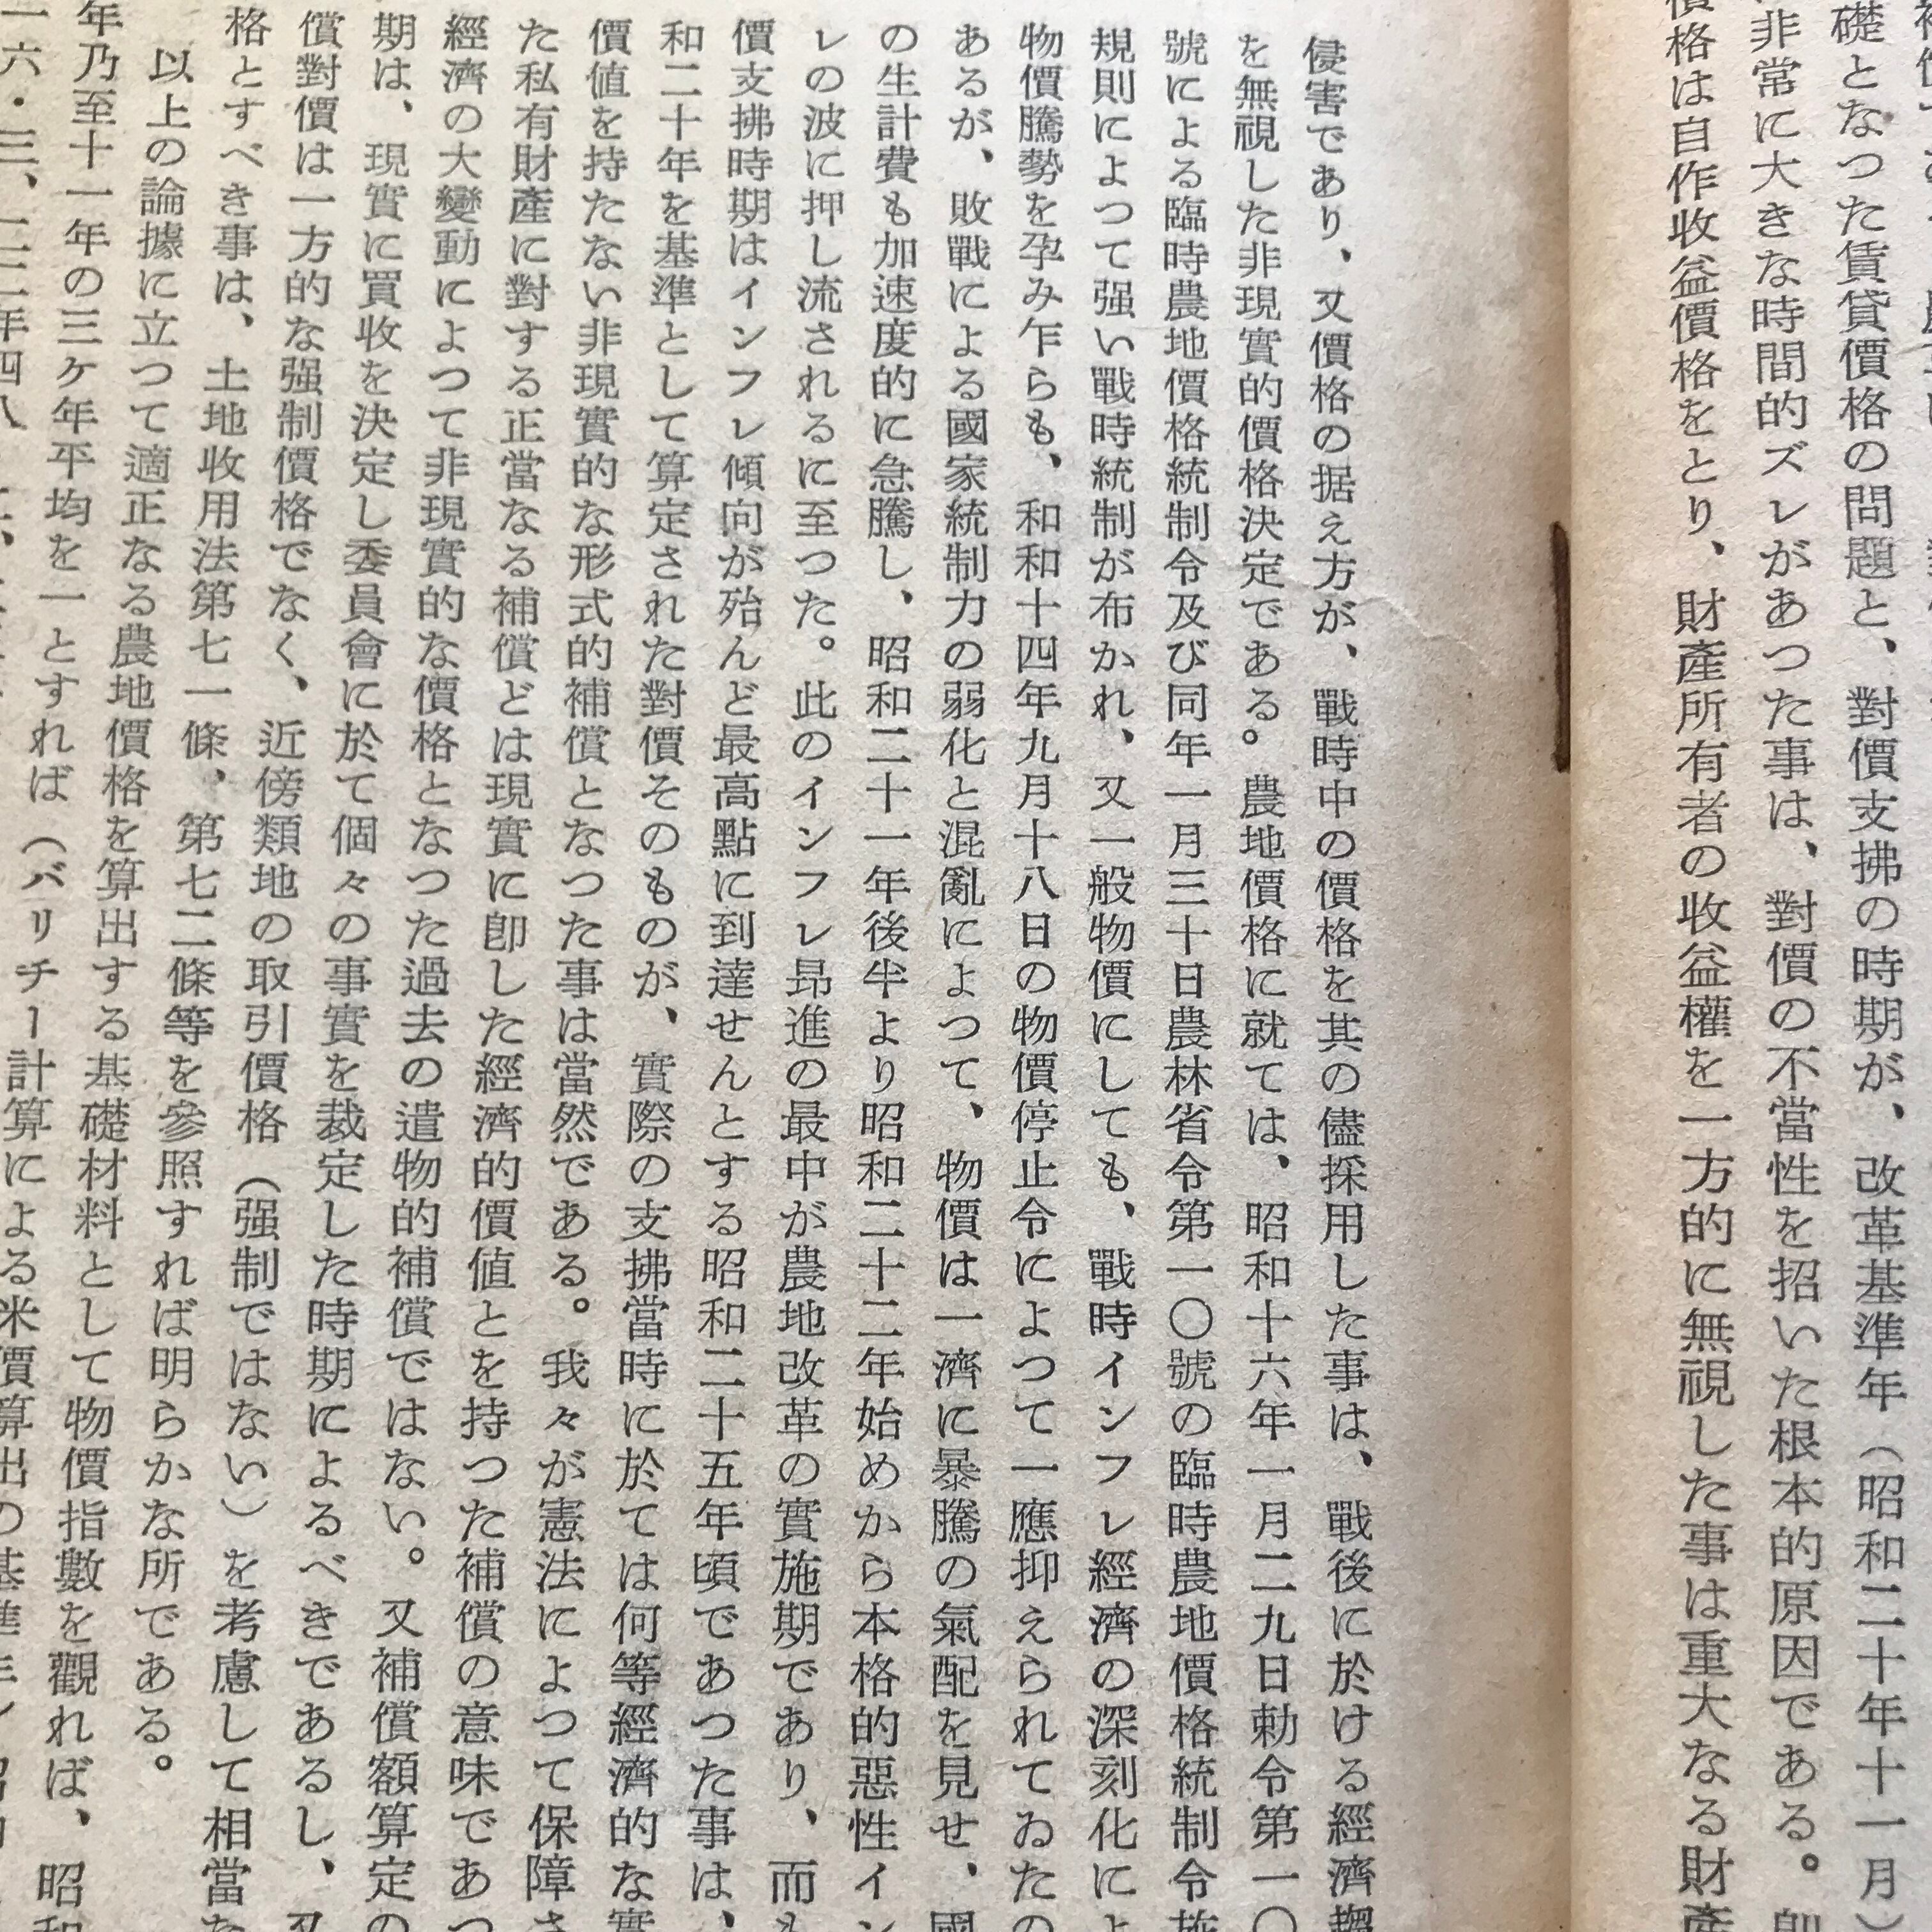 礎となつた賃貸價格の問題と、對價支拂の時期が、改革基準年（昭和二十年十一月）
非常に大きな時間的ズレがあつた事は、對價の不當性を招いた根本的原因である。
價格は自作收益價格をとり、財產所有者の收益權を一方的に無視した事は重大なる財產
侵害であり、又價格の据え方が、戰時中の價格を其の儘採用した事は、戰後に於ける經濟
を無視した非現實的價格決定である。農地價格に就ては、昭和十六年一月二九日勅令第一〇
號による臨時農地價格統制令及び同年一月三十日農林省令第一〇號の臨時農地價格統制令施
規則によつて强い戰時統制が布かれ、又一般物價にしても、戰時インフレ經濟の深刻化によ
物價騰勢を孕み乍らも、和和十四年九月十八日の物價停止令によつて一應抑えられてゐたの
あるが、敗戰による國家統制力の弱化と混亂によつて、物價は一濟に暴騰の氣配を見せ、國
の生計費も加速度的に急騰し、昭和二十一年後半より昭和二十二年始めから本格的惡性イン
レの波に押し流されるに至つた。此のインフレ昻進の最中が農地改革の實施期であり、而も
價支拂時期はインフレ傾向が殆んど最高點に到達せんとする昭和二十五年頃であつた事は、
和二十年を基準として算定された對價そのものが、實際の支拂當時に於ては何等經濟的な實
價値を持たない非現實的な形式的補償となつた事は當然である。我々が憲法によつて保障さ
た私有財產に對する正當なる補償どは現實に卽した經濟的價値とを持つた補償の意味であつ
經濟の大變動によつて非現實的な價格となつた過去の遺物的補償ではない。又補償額算定の
期は、現實に買收を決定し委員會に於て個々の事實を裁定した時期によるべきであるし、又
償對價は一方的な强制價格でなく、近傍類地の取引價格（强制ではない）を考慮して相當た
格とすべき事は、土地收用法第七一條、第七二條等を參照すれば明らかな所である。
以上の論據に立つて適正なる農地價格を算出する基礎材料として物價指數を觀れば、昭和
年乃至十一年の三ケ年平均を一とすれば（バリチー計算による米價算出の基準年）